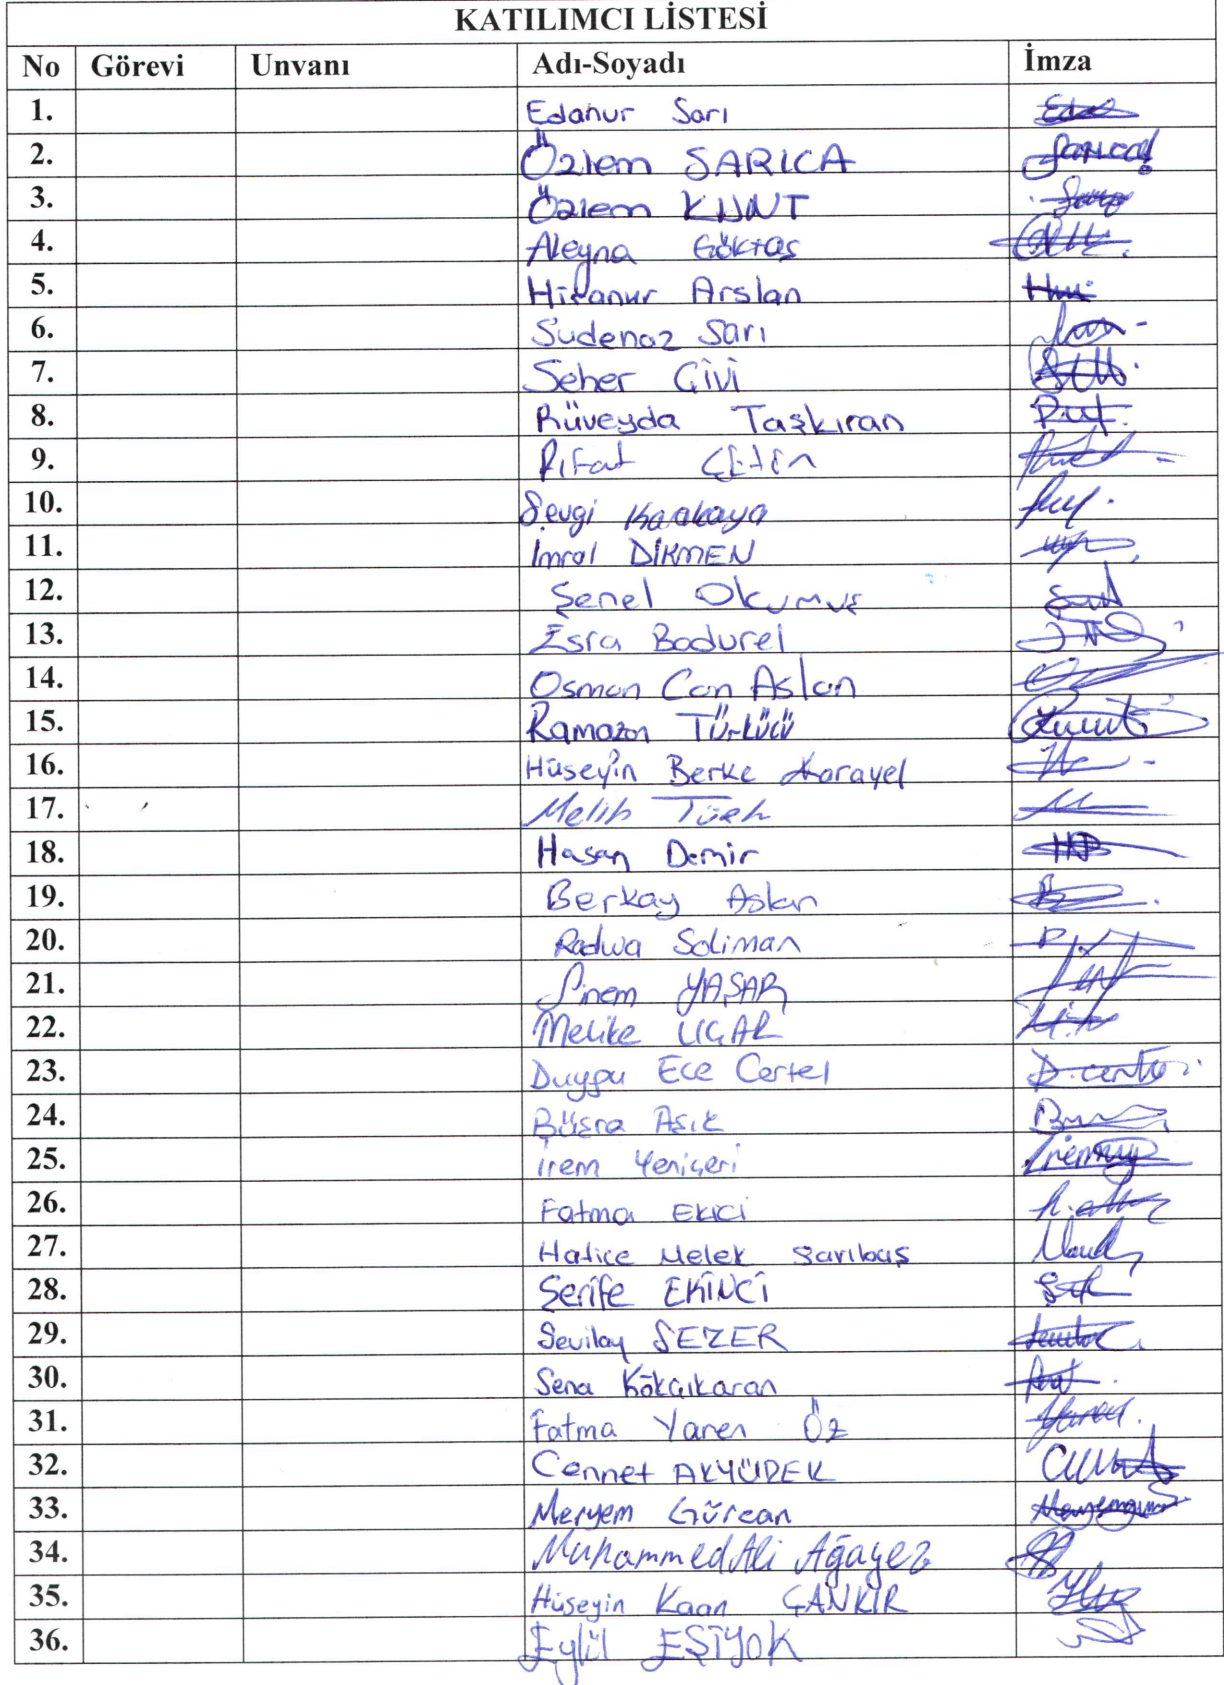 KATILIMCI LİSTESİ
No Görevi Unvanı Adı-Soyadı İmza
1. Edanur Sarı
2. Özlem SARICA
3. Özlem KUNT
4. Aleyna Göktaş
5. Hiranur Arslan
6. Sudenaz Sarı
7. Seher Çivi
8. Rüveyda Taşkıran
9. Rıfat Çetin
10. Sevgi Karakaya
11. İmral DİKMEN
12. Şenel Okumuş
13. Esra Badurel
14. Osman Can Aslan
15. Ramazan Türkücü
16. Hüseyin Berke Karayel
17. Melih Türk
18. Hasan Demir
19. Berkay Aslan
20. Radwa Soliman
21. Sinem YAŞAR
22. Melike UÇAR
23. Duygu Ece Certel
24. Büşra Aşık
25. İrem Yeniçeri
26. Fatma Ekici
27. Hatice Melek Sarıbaş
28. Şerife EKİNCİ
29. Sevilay SEZER
30. Sena Kökçıkaran
31. Fatma Yaren Öz
32. Cennet AKYÜREK
33. Meryem Gürcan
34. Muhammed Ali Ağayez
35. Hüseyin Kaan ÇANKIR
36. Eylül EŞİYOK